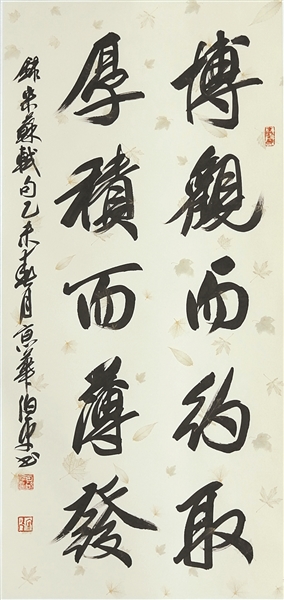 博觀而約取
厚積而薄發
錄宋蘇軾句乙未春月京華伯平书